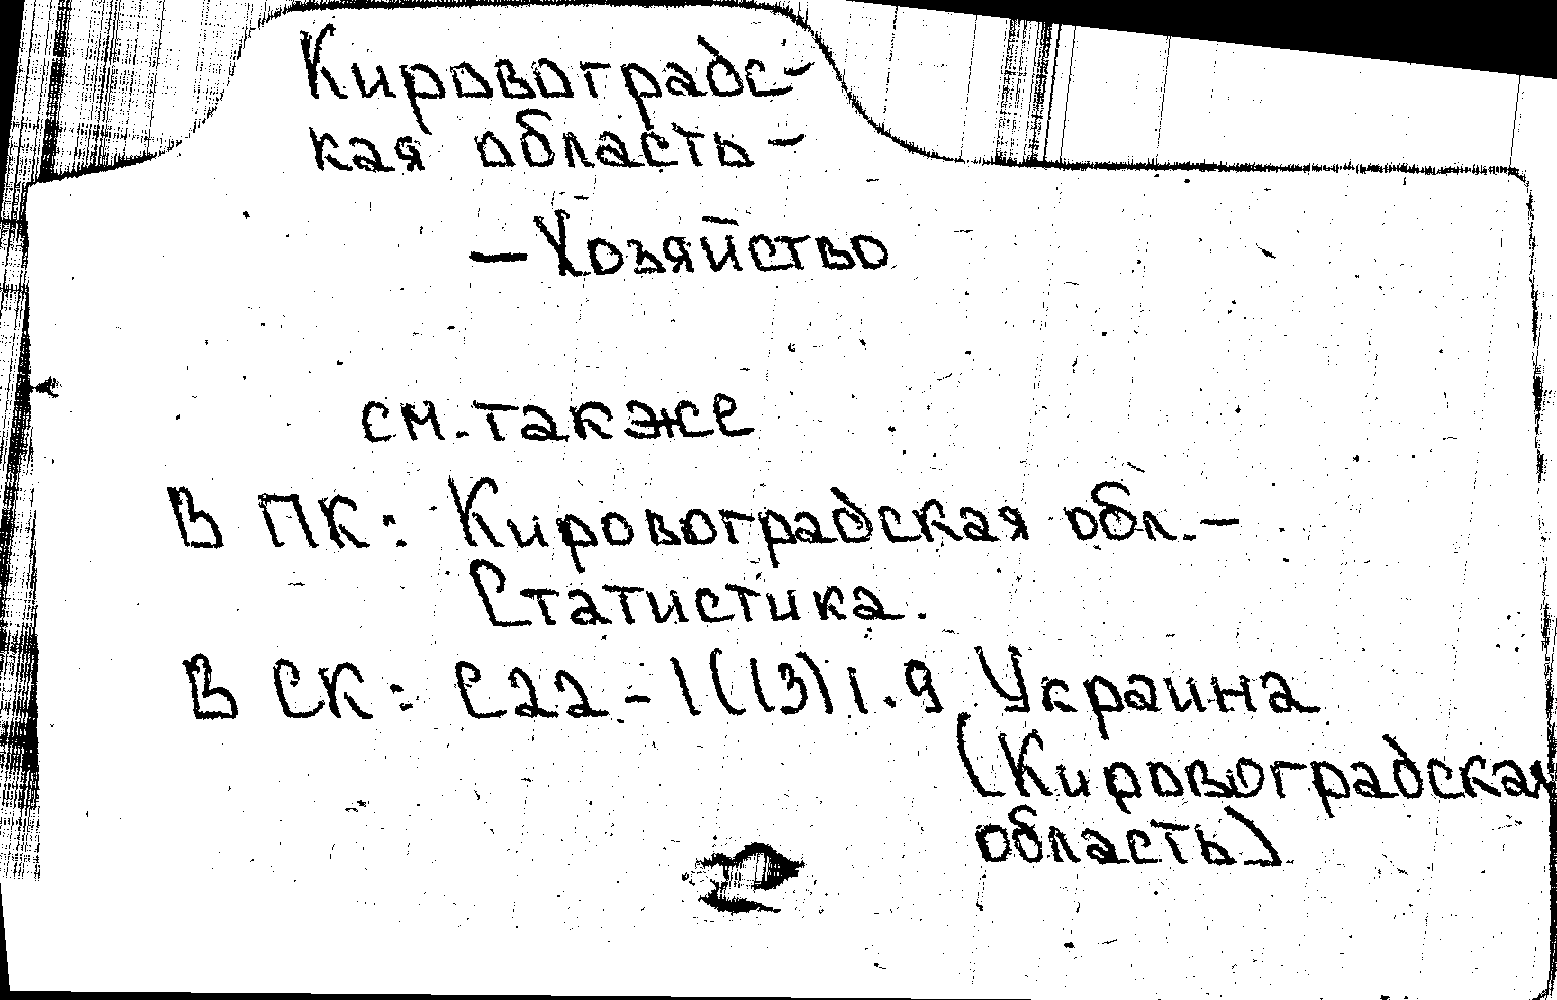 Кировоградс-
кая область -
- Хозяйство
см. также
В ПК: Кировоградская обл. -
Статистика.
В СК: С22-1(13)1.9 Украина
(Кировоградская
область)